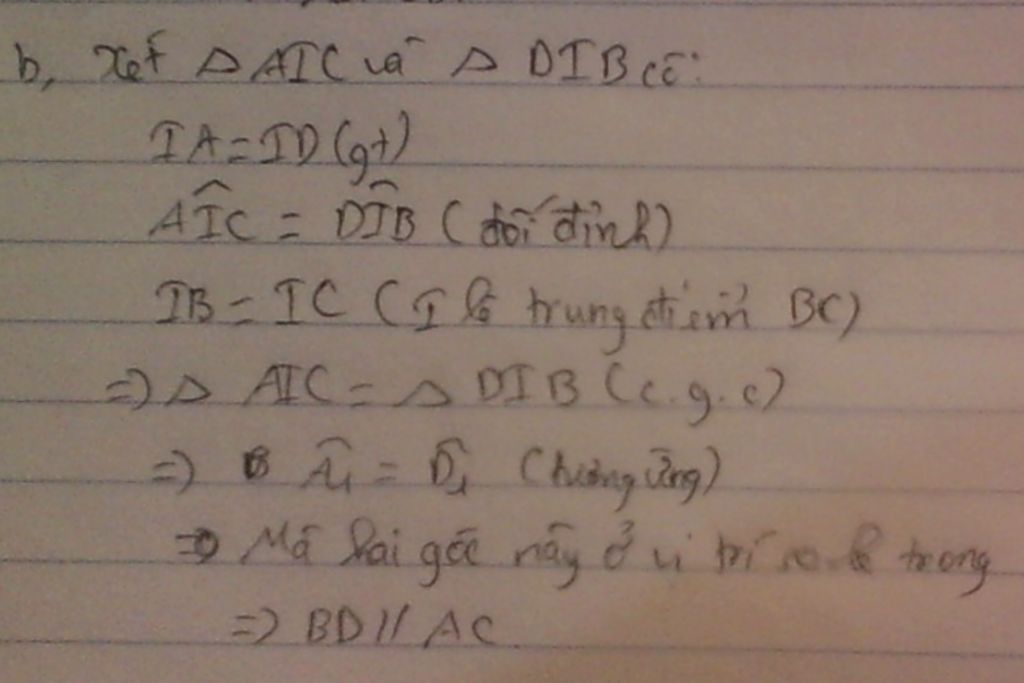 b, Xét △ AIC và △ DIB có:
IA = ID (gt)
AÎC = DÎB (đối đỉnh)
IB = IC (I là trung điểm BC)
=> △ AIC = △ DIB (c.g.c)
=> Â₁ = D̂₁ (tương ứng)
=> Mà hai góc này ở vị trí so le trong
=> BD // AC